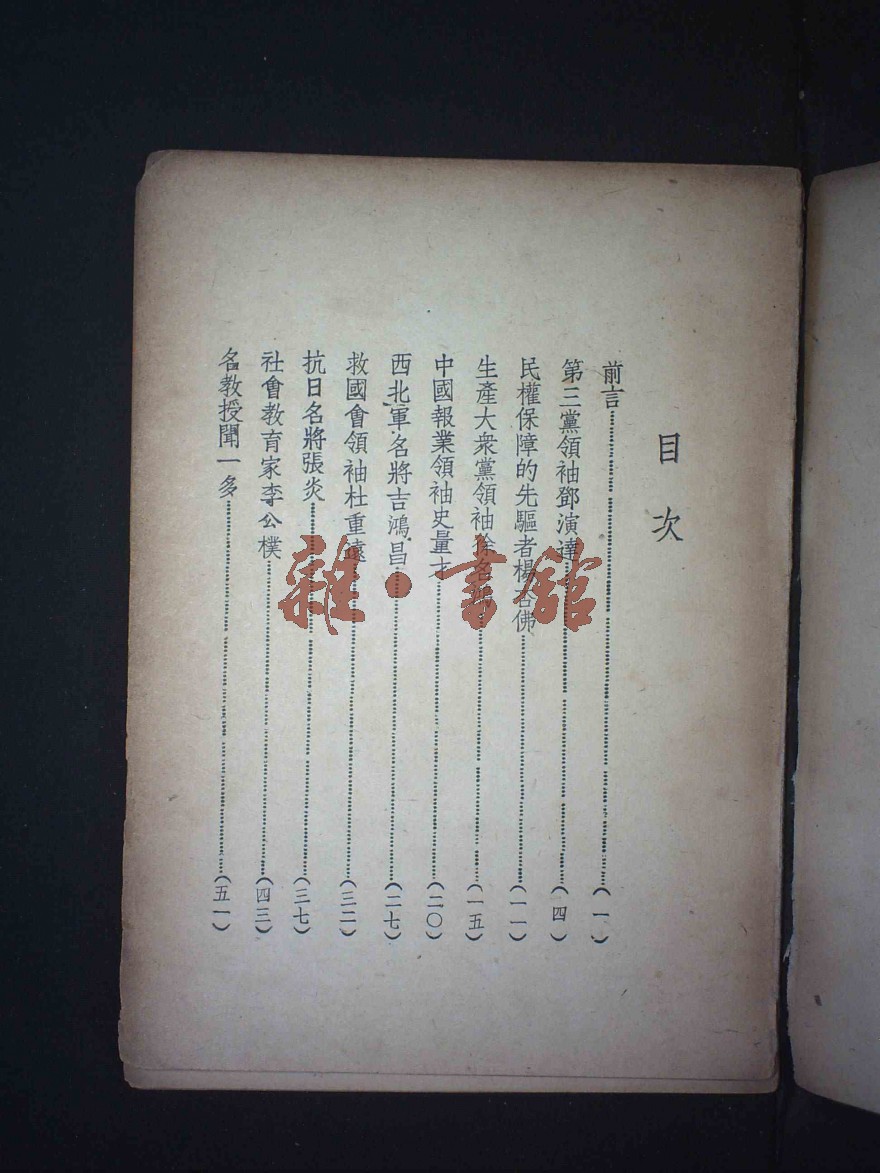 目次
前言……(一)
第三黨領袖鄧演達……(四)
民權保障的先驅者楊杏佛……(一一)
生產大衆黨領袖徐名……(一五)
中國報業領袖史量才……(二〇)
西北軍名將吉鴻昌……(二七)
救國會領袖杜重遠……(三二)
抗日名將張炎……(三七)
社會教育家李公樸……(四三)
名教授聞一多……(五一)
雜·書館